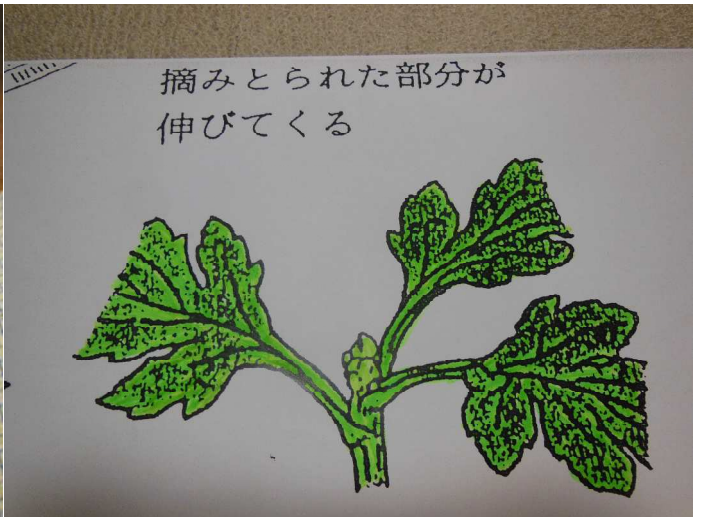 摘みとられた部分が
伸びてくる